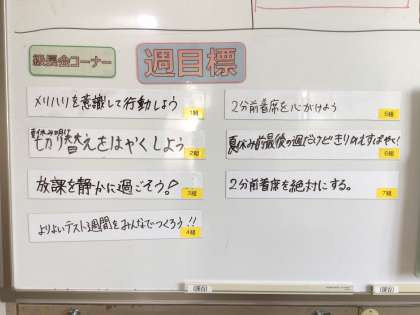 級長会コーナー
週目標
メリハリを意識して行動しよう
1組
切り替えをはやくしよう
2組
放課を静かに過ごそう!
3組
よりよいテスト週間をみんなでつくろう!!
4組
2分前着席を心がけよう
5組
夏休み前最後の週だけどきりかえすばやく!
6組
2分前着席を絶対にする。
7組